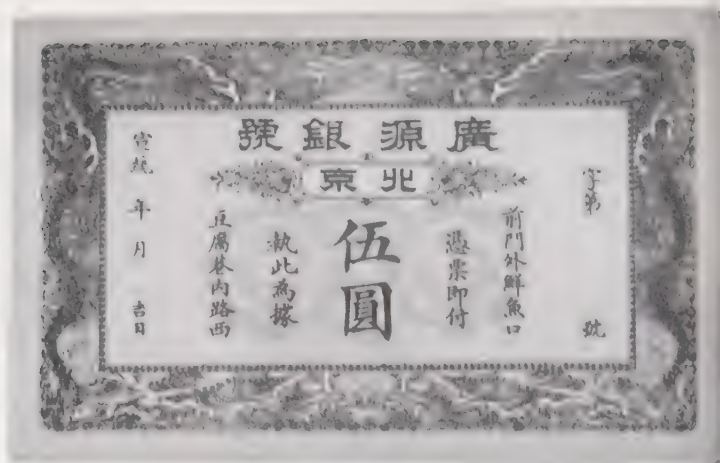 廣源銀號
北京
字第　號
前門外鮮魚口
憑票即付
伍圓
執此為據
豆腐巷內路西
宣統　年　月　吉日